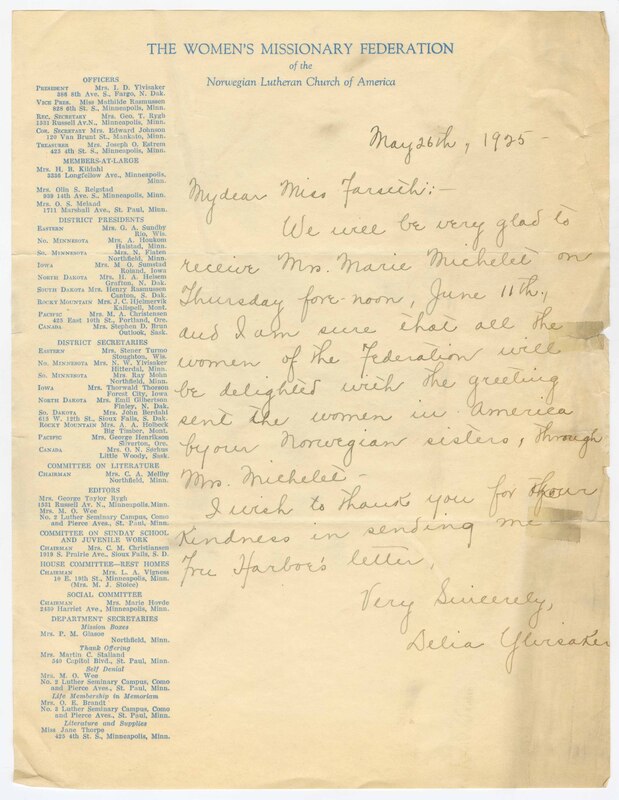 THE WOMEN'S MISSIONARY FEDERATION
of the
Norwegian Lutheran Church of America
OFFICERS
PRESIDENT Mrs. I. D. Ylvisaker
386 8th Ave. S., Fargo, N. Dak.
VICE PRES. Miss Mathilde Rasmussen
828 6th St. S., Minneapolis, Minn.
REC. SECRETARY Mrs. Geo. T. Rygh
1331 Russell Av.N., Minneapolis, Minn.
COR. SECRETARY Mrs. Edward Johnson
120 Van Brunt St., Mankato, Minn.
TREASURER Mrs. Joseph O. Estrem
425 4th St. S., Minneapolis, Minn.
MEMBERS-AT-LARGE
Mrs. H. B. Kildahl
3336 Longfellow Ave., Minneapolis,
Minn.
Mrs. Olin S. Reigstad
939 14th Ave. S., Minneapolis, Minn.
Mrs. O. S. Meland
1711 Marshall Ave., St. Paul, Minn.
DISTRICT PRESIDENTS
EASTERN Mrs. G. A. Sundby
Rio, Wis.
NO. MINNESOTA Mrs. A. Houkom
Halstad, Minn.
SO. MINNESOTA Mrs. N. Flaten
Northfield, Minn.
IOWA Mrs. M. O. Sumstad
Roland, Iowa
NORTH DAKOTA Mrs. H. A. Helsem
Grafton, N. Dak.
SOUTH DAKOTA Mrs. Henry Rasmussen
Canton, S. Dak.
ROCKY MOUNTAIN Mrs. J. C. Hjelmervik
Kalispell, Mont.
PACIFIC Mrs. M. A. Christensen
425 East 10th St., Portland, Ore.
CANADA Mrs. Stephen D. Brun
Outlook, Sask.
DISTRICT SECRETARIES
EASTERN Mrs. Stener Turmo
Stoughton, Wis.
NO. MINNESOTA Mrs. N. W. Ylvisaker
Hitterdal, Minn.
SO. MINNESOTA Mrs. Ray Mohn
Northfield, Minn.
IOWA Mrs. Thorwald Thorson
Forest City, Iowa
NORTH DAKOTA Mrs. Emil Gilbertson
Finley, N. Dak.
SO. DAKOTA Mrs. John Berdahl
613 W. 12th St., Sioux Falls, S. Dak.
ROCKY MOUNTAIN Mrs. A. A. Hofseck
Big Timber, Mont.
PACIFIC Mrs. George Henrikson
Silverton, Ore.
CANADA Mrs. O. N. Sørhus
Little Woody, Sask.
COMMITTEE ON LITERATURE
CHAIRMAN Mrs. C. A. Mellby
Northfield, Minn.
EDITORS
Mrs. George Taylor Rygh
1331 Russell Av. N., Minneapolis, Minn.
Mrs. M. O. Wee
No. 2 Luther Seminary Campus, Como
and Pierce Aves., St. Paul, Minn.
COMMITTEE ON SUNDAY SCHOOL
AND JUVENILE WORK
CHAIRMAN Mrs. C. M. Christiansen
1919 S. Prairie Ave., Sioux Falls, S. D.
HOUSE COMMITTEE—REST HOMES
CHAIRMAN Mrs. L. A. Vigness
10 E. 19th St., Minneapolis, Minn.
(Mrs. M. J. Stolee)
SOCIAL COMMITTEE
CHAIRMAN Mrs. Marie Hovde
2430 Harriet Ave., Minneapolis, Minn.
DEPARTMENT SECRETARIES
Mission Boxes
Mrs. P. M. Glasoe
Northfield, Minn.
Thank Offering
Mrs. Martin C. Stalland
540 Capitol Blvd., St. Paul, Minn.
Self Denial
Mrs. M. O. Wee
No. 2 Luther Seminary Campus, Como
and Pierce Aves., St. Paul, Minn.
Life Membership in Memoriam
Mrs. O. E. Brandt
No. 2 Luther Seminary Campus, Como
and Pierce Aves., St. Paul, Minn.
Literature and Supplies
Miss Jane Thorpe
425 4th St. S., Minneapolis, Minn.
May 26th, 1925
My dear Miss Farseth:-
We will be very glad to
receive Mrs. Marie Michelet on
Thursday fore-noon, June 11th,
and I am sure that all the
women of the Federation will
be delighted with the greeting
sent the women in America
by our Norwegian sisters, through
Mrs. Michelet-
I wish to thank you for your
kindness in sending me
Fru Harboe's letter.
Very Sincerely,
Delia Ylvisaker